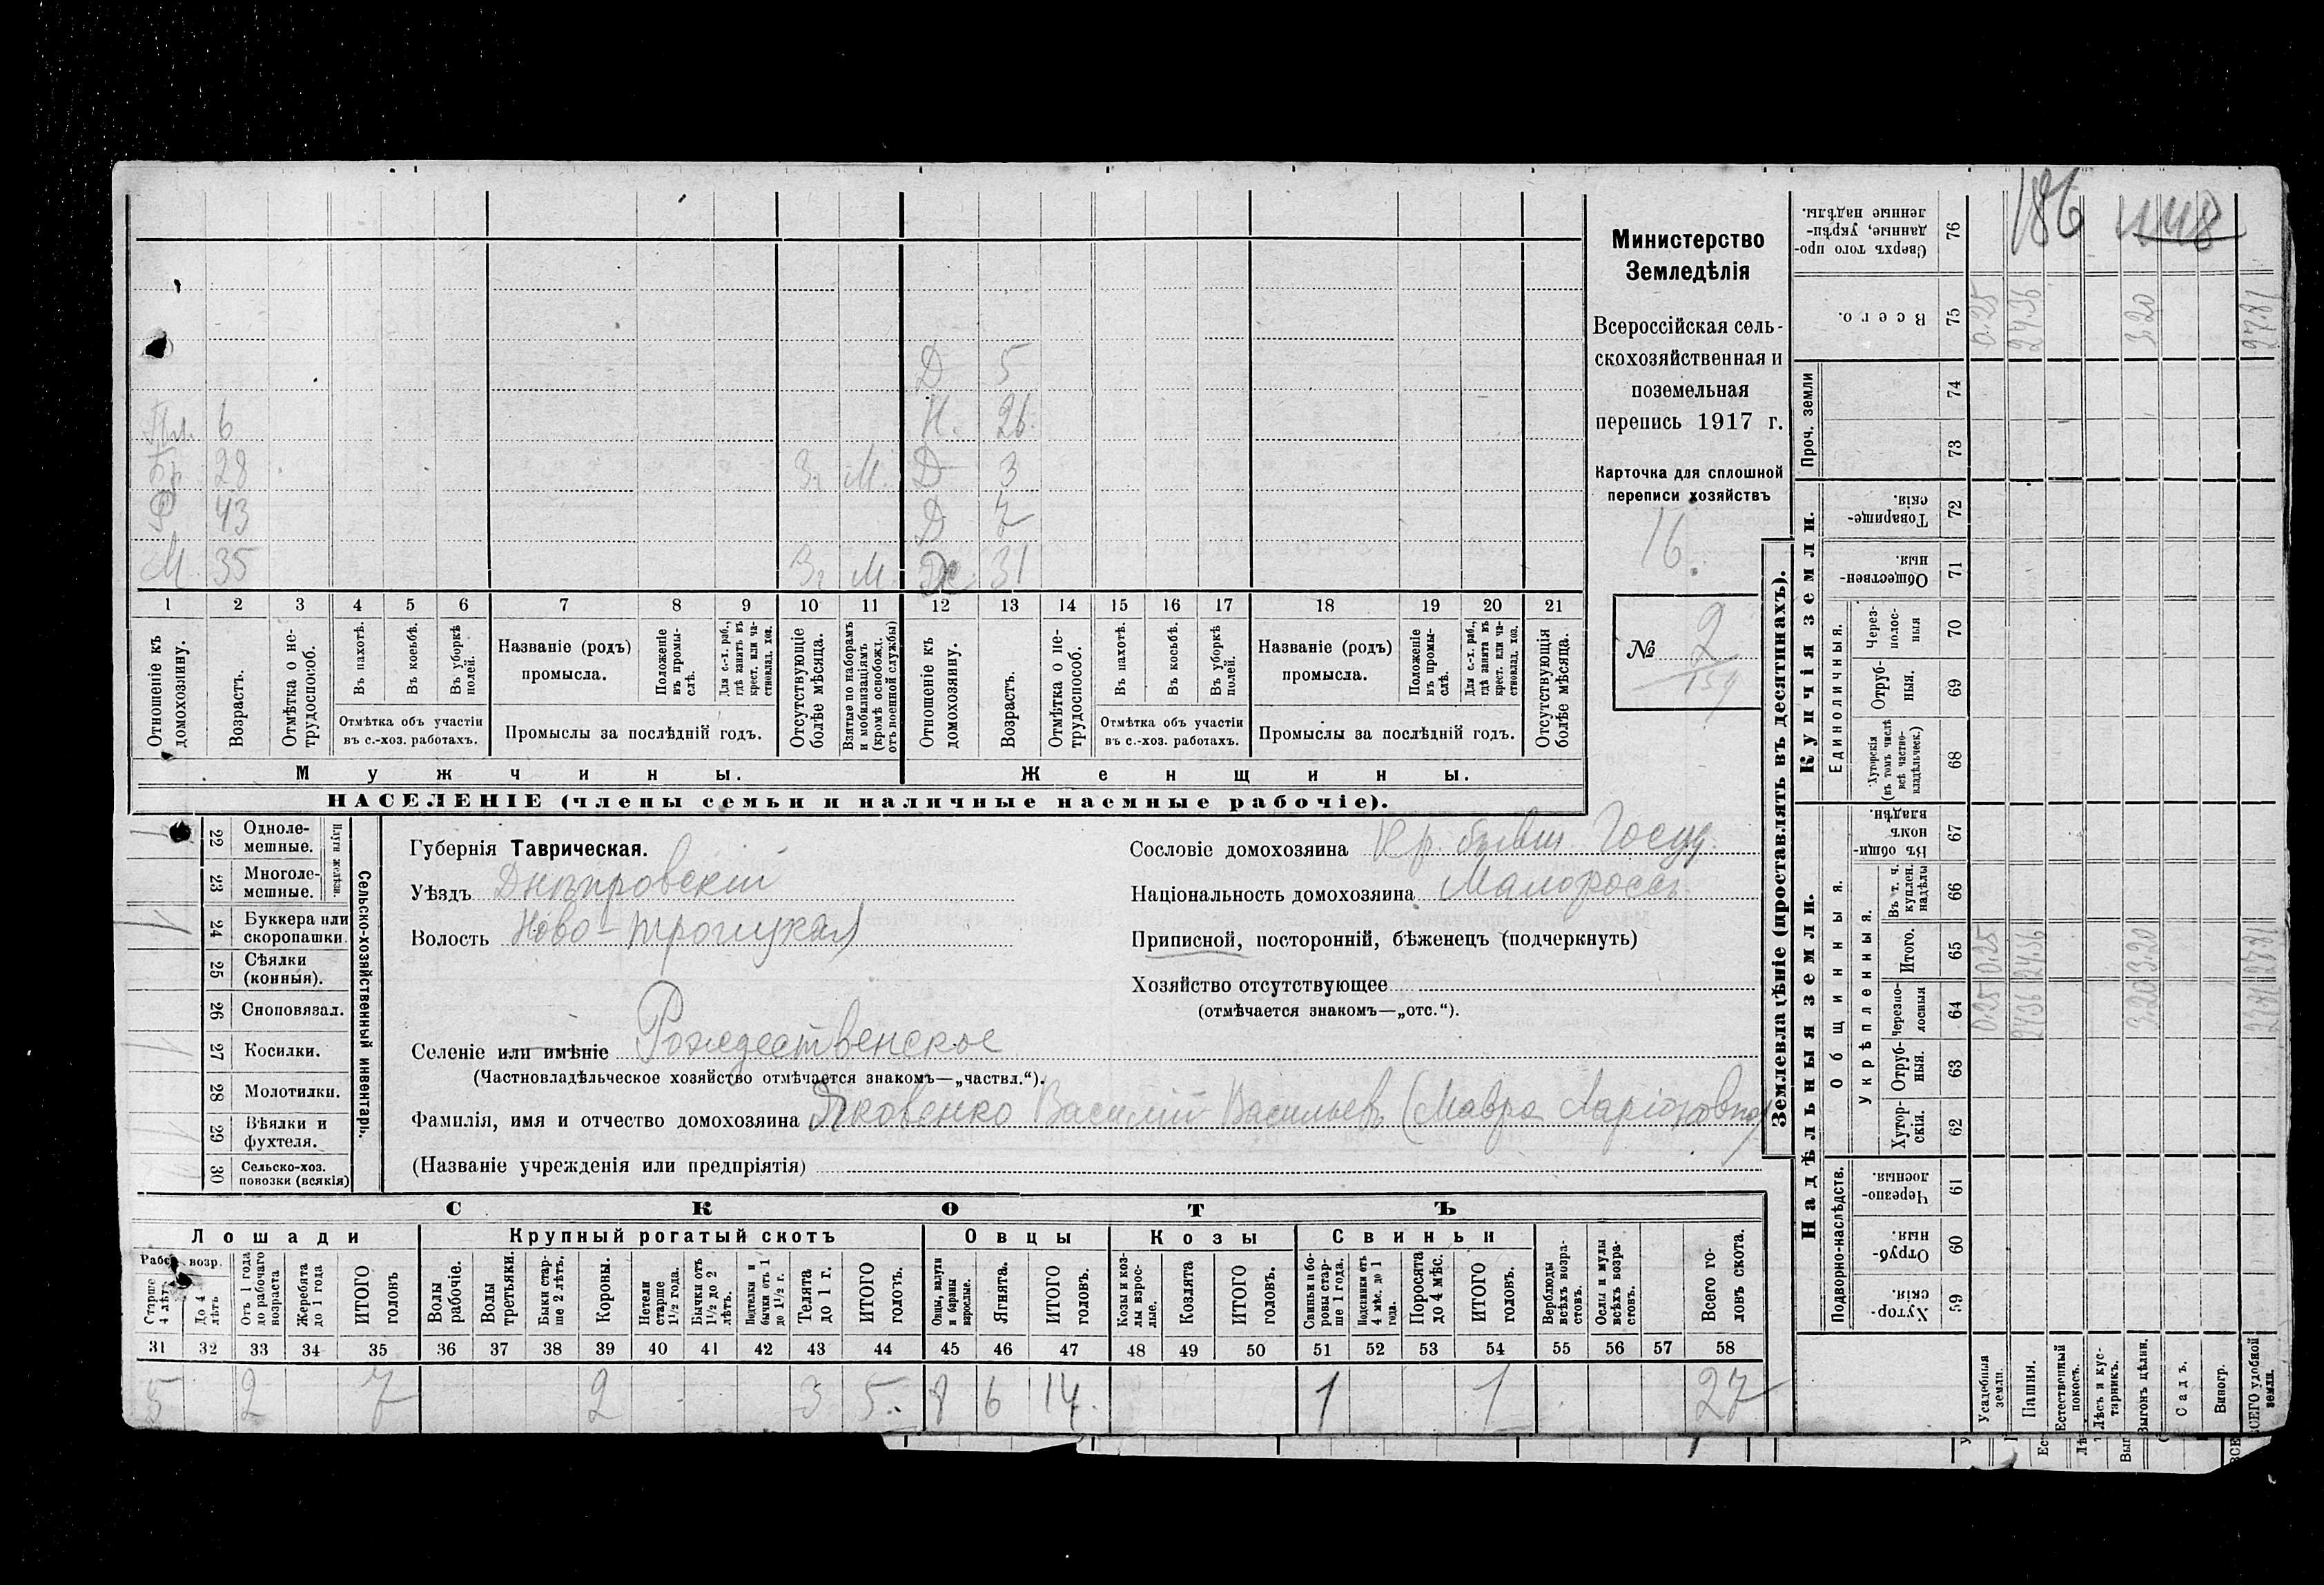 186 1118
Министерство
Земледѣлія
Всероссійская сель-
скохозяйственная и
поземельная
перепись 1917 г.
Карточка для сплошной
переписи хозяйствъ
16.
№ 9
159
Д 5
Пл. 6 Н. 26.
Бр. 28 3г М. Д 3
Р 43 Д 7
М. 35 3г М. Дж 31
1 2 3 4 5 6 7 8 9 10 11 12 13 14 15 16 17 18 19 20 21
Отношеніе къ домохозяину.
Возрастъ.
Отмѣтка о не-трудоспособ.
Въ пахотѣ.
Въ косьбѣ.
Въ уборкѣ полей.
Отмѣтка объ участіи
въ с.-хоз. работахъ.
Названіе (родъ)
промысла.
Положеніе въ промы-слѣ.
Для с.-х. раб., гдѣ занятъ въ крест. или ча-стновлад. хоз.
Промыслы за послѣдній годъ.
Отсутствующіе болѣе мѣсяца.
Взятые по наборамъ и мобилизаціямъ (кромѣ освобожд. отъ военной службы)
Отношеніе къ домохозяину.
Возрастъ.
Отмѣтка о не-трудоспособ.
Въ пахотѣ.
Въ косьбѣ.
Въ уборкѣ полей.
Отмѣтка объ участіи
въ с.-хоз. работахъ.
Названіе (родъ)
промысла.
Положеніе въ промы-слѣ.
Для с.-х. раб., гдѣ занята въ крест. или ча-стновлад. хоз.
Промыслы за послѣдній годъ.
Отсутствующія болѣе мѣсяца.
Мужчины. Женщины.
НАСЕЛЕНІЕ (члены семьи и наличные наемные рабочіе).
Сельско-хозяйственный инвентарь.
Плуги желѣзн.
1 22 Одноле-мешные.
23 Многоле-мешные.
1 24 Буккера или скоропашки.
25 Сѣялки (конныя).
26 Сноповязал.
1 27 Косилки.
28 Молотилки.
1 29 Вѣялки и фухтеля.
30 Сельско-хоз. повозки (всякія)
Губернія Таврическая.
Уѣздъ Днѣпровскій
Волость Ново-троицкая
Селеніе или имѣніе Рождественское
(Частновладѣльческое хозяйство отмѣчается знакомъ—„частвл.“).
Фамилія, имя и отчество домохозяина Яковенко Василій Васильевъ (Мавра Ларіоновна)
(Названіе учрежденія или предпріятія)
Сословіе домохозяина Кр. бывш. Госуд.
Національность домохозяина Малороссъ.
Приписной, посторонній, бѣженецъ (подчеркнуть)
Хозяйство отсутствующее
(отмѣчается знакомъ—„отс.“).
СКОТЪ
Лошади Крупный рогатый скотъ Овцы Козы Свиньи
Рабоч. возр.
Старше 4 лѣтъ
До 4 лѣтъ
Отъ 1 года до рабочаго возраста
Жеребята до 1 года
ИТОГО головъ
Волы рабочіе.
Волы третьяки.
Быки стар-ше 2 лѣтъ.
Коровы.
Нетели старше 1½ года.
Бычки отъ 1½ до 2 лѣтъ.
Подтелки и бычки отъ 1 до 1½ г.
Телята до 1 г.
ИТОГО головъ.
Овцы, валухи и бараны взрослые.
Ягнята.
ИТОГО головъ.
Козы и коз-лы взрос-лые.
Козлята
ИТОГО головъ.
Свиньи и бо-ровы стар-ше 1 года.
Подсвинки отъ 4 мѣс. до 1 года.
Поросята до 4 мѣс.
ИТОГО головъ.
Верблюды всѣхъ возра-стовъ.
Ослы и мулы всѣхъ возра-стовъ.
Всего го-ловъ скота.
31 32 33 34 35 36 37 38 39 40 41 42 43 44 45 46 47 48 49 50 51 52 53 54 55 56 57 58
5 2 7 2 3 5 8 6 14 1 1 27
Землевладѣніе (проставлять въ десятинахъ).
Надѣльныя земли. Купчія земли.
Подворно-наслѣдств.
Общинныя.
Укрѣпленныя.
Единоличныя.
Проч. земли
Хутор-скія. 59
Отруб-ныя. 60
Черезпо-лосныя. 61
Хутор-скія. 62
Отруб-ныя. 63
Черезпо-лосныя 64
Итого. 65
Въ т. ч. куплен. надѣлы 66
Въ общин-номъ владѣн. 67
Хуторскія (въ томъ числѣ всѣ частно-владѣльческ.) 68
Отруб-ныя. 69
Через-полос-ныя 70
Обществен-ныя. 71
Товарище-скія. 72
73
74
Всего. 75
Сверхъ того про-данные, укрѣп-ленные надѣлы. 76
Усадебная земля. 0.25 0.25 0.25
Пашня. 24.36 24.36 24.36
Естественный покосъ.
Лѣсъ и кус-тарникъ.
Выгонъ цѣлин. 3.20 3.20 3.20
Садъ.
Виногр.
ВСЕГО удобной земли. 27.81 27.81 27.81